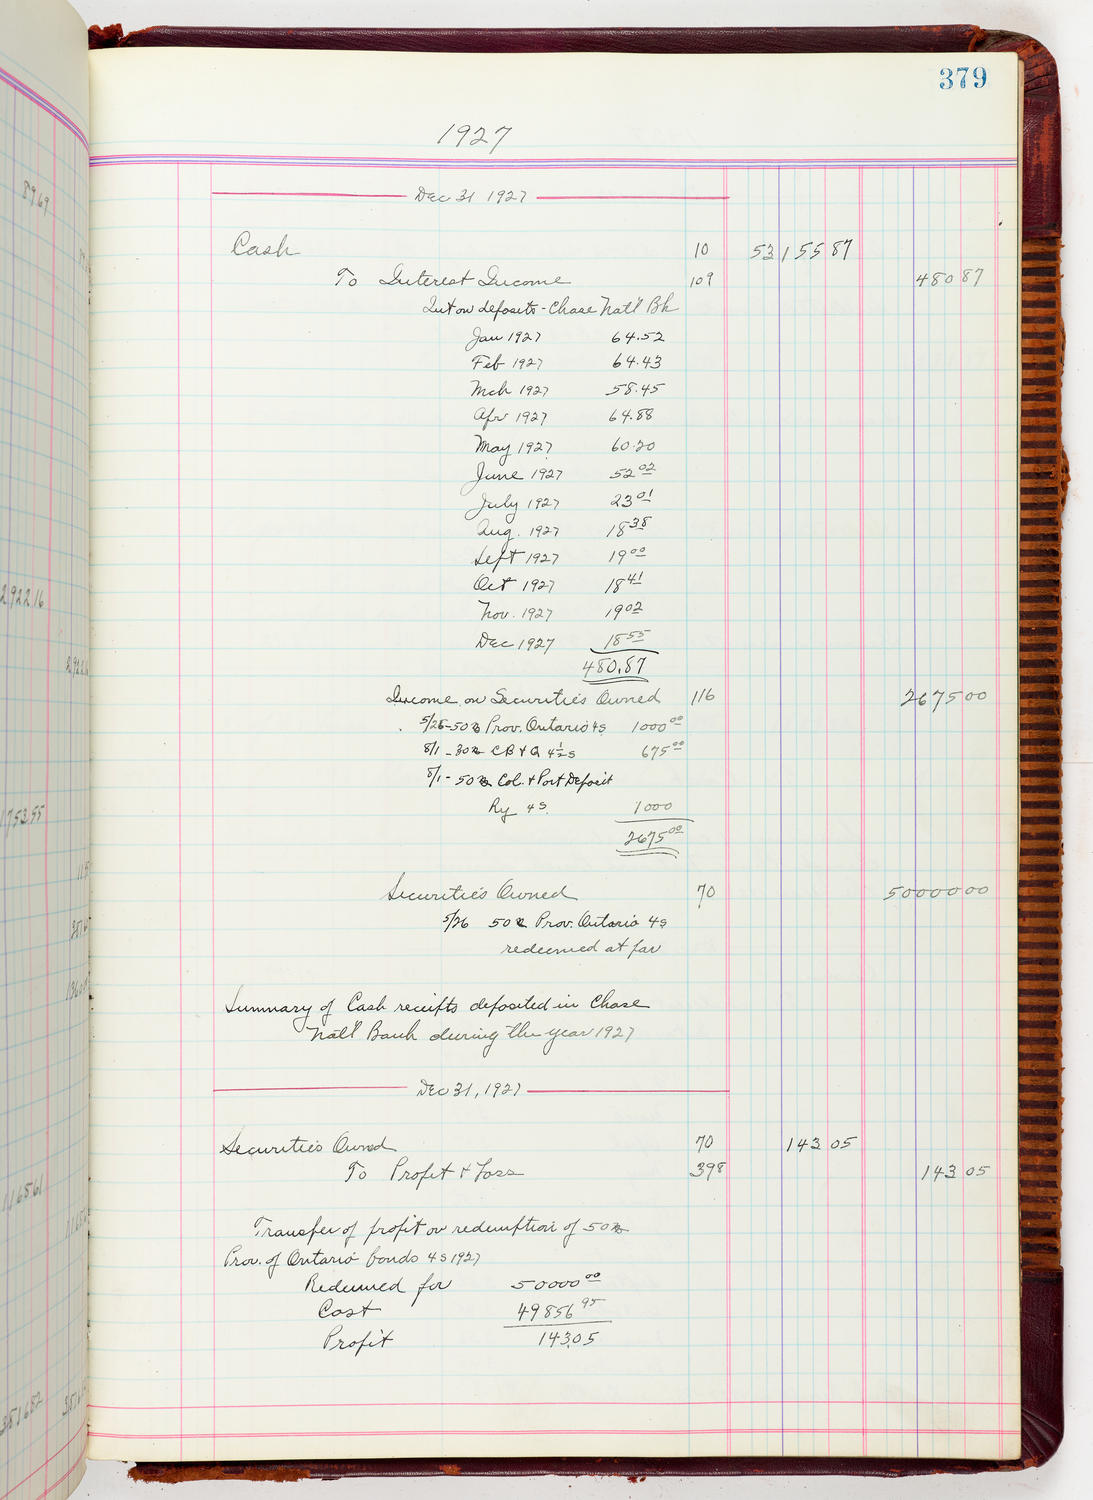 379
1927
Dec 31 1927
Cash 10 53155 87
To Interest Income 109 480 87
Int on deposits - Chase Nat'l Bk
Jan 1927 64.52
Feb 1927 64.43
Mch 1927 58.45
Apr 1927 64.88
May 1927 60.20
June 1927 52 02
July 1927 23 01
Aug. 1927 18 38
Sept 1927 19 00
Oct 1927 18 41
Nov. 1927 19 02
Dec 1927 18 55
480.87
Income on Securities Owned 116 2675 00
5/26-50M Prov. Ontario 4s 1000 00
8/1-30M CB & Q 4½s 675 00
8/1-50M Col. & Port Deposit
Ry 4s. 1000
2675 00
Securities Owned 70 50000 00
5/26 50M Prov. Ontario 4s
redeemed at par
Summary of Cash receipts deposited in Chase
Nat'l Bank during the year 1927
Dec 31, 1927
Securities Owned 70 143 05
To Profit & Loss 398 143 05
Transfer of profit on redemption of 50M
Prov. of Ontario bonds 4s 1927
Redeemed for 50000 00
Cost 49856 95
Profit 143.05
8969
2922 16
1753.55
11656 1
3816 82